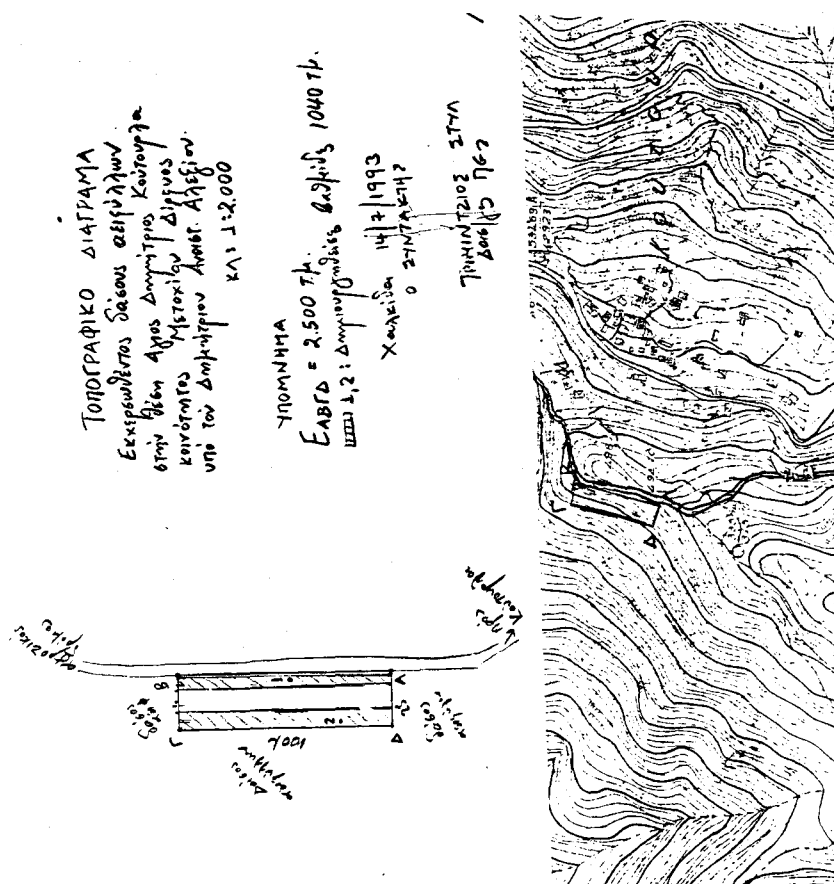 ΤΟΠΟΓΡΑΦΙΚΟ ΔΙΑΓΡΑΜΑ
Εκχερσωθέντος δάσους αειφύλλων
στην θέση Άγιος Δημήτριος Κούτουρλα
κοινότητος Μετοχίου Διρφυος
υπό του Δημητρίου Αναστ. Αλεξίου.
ΚΛ: 1:2.000
ΥΠΟΜΝΗΜΑ
ΕΑΒΓΔ = 2.500 τ.μ.
1,2: Δημιουργηθείσες βαθμίδες 1040 τμ.
Χαλκίδα 14/7/1993
Ο ΣΥΝΤΑΚΤΗΣ
ΤΡΙΜΙΝΤΖΙΟΣ ΣΤΥΛ
ΠΕ2
αγροτικός
δρόμος
προς
Κούτουρλα
Β
Α
1
2
Γ
Δ
100μ
δάσος
αειφύλλων
Δάσος
αειφύλλων
Γ
Δ